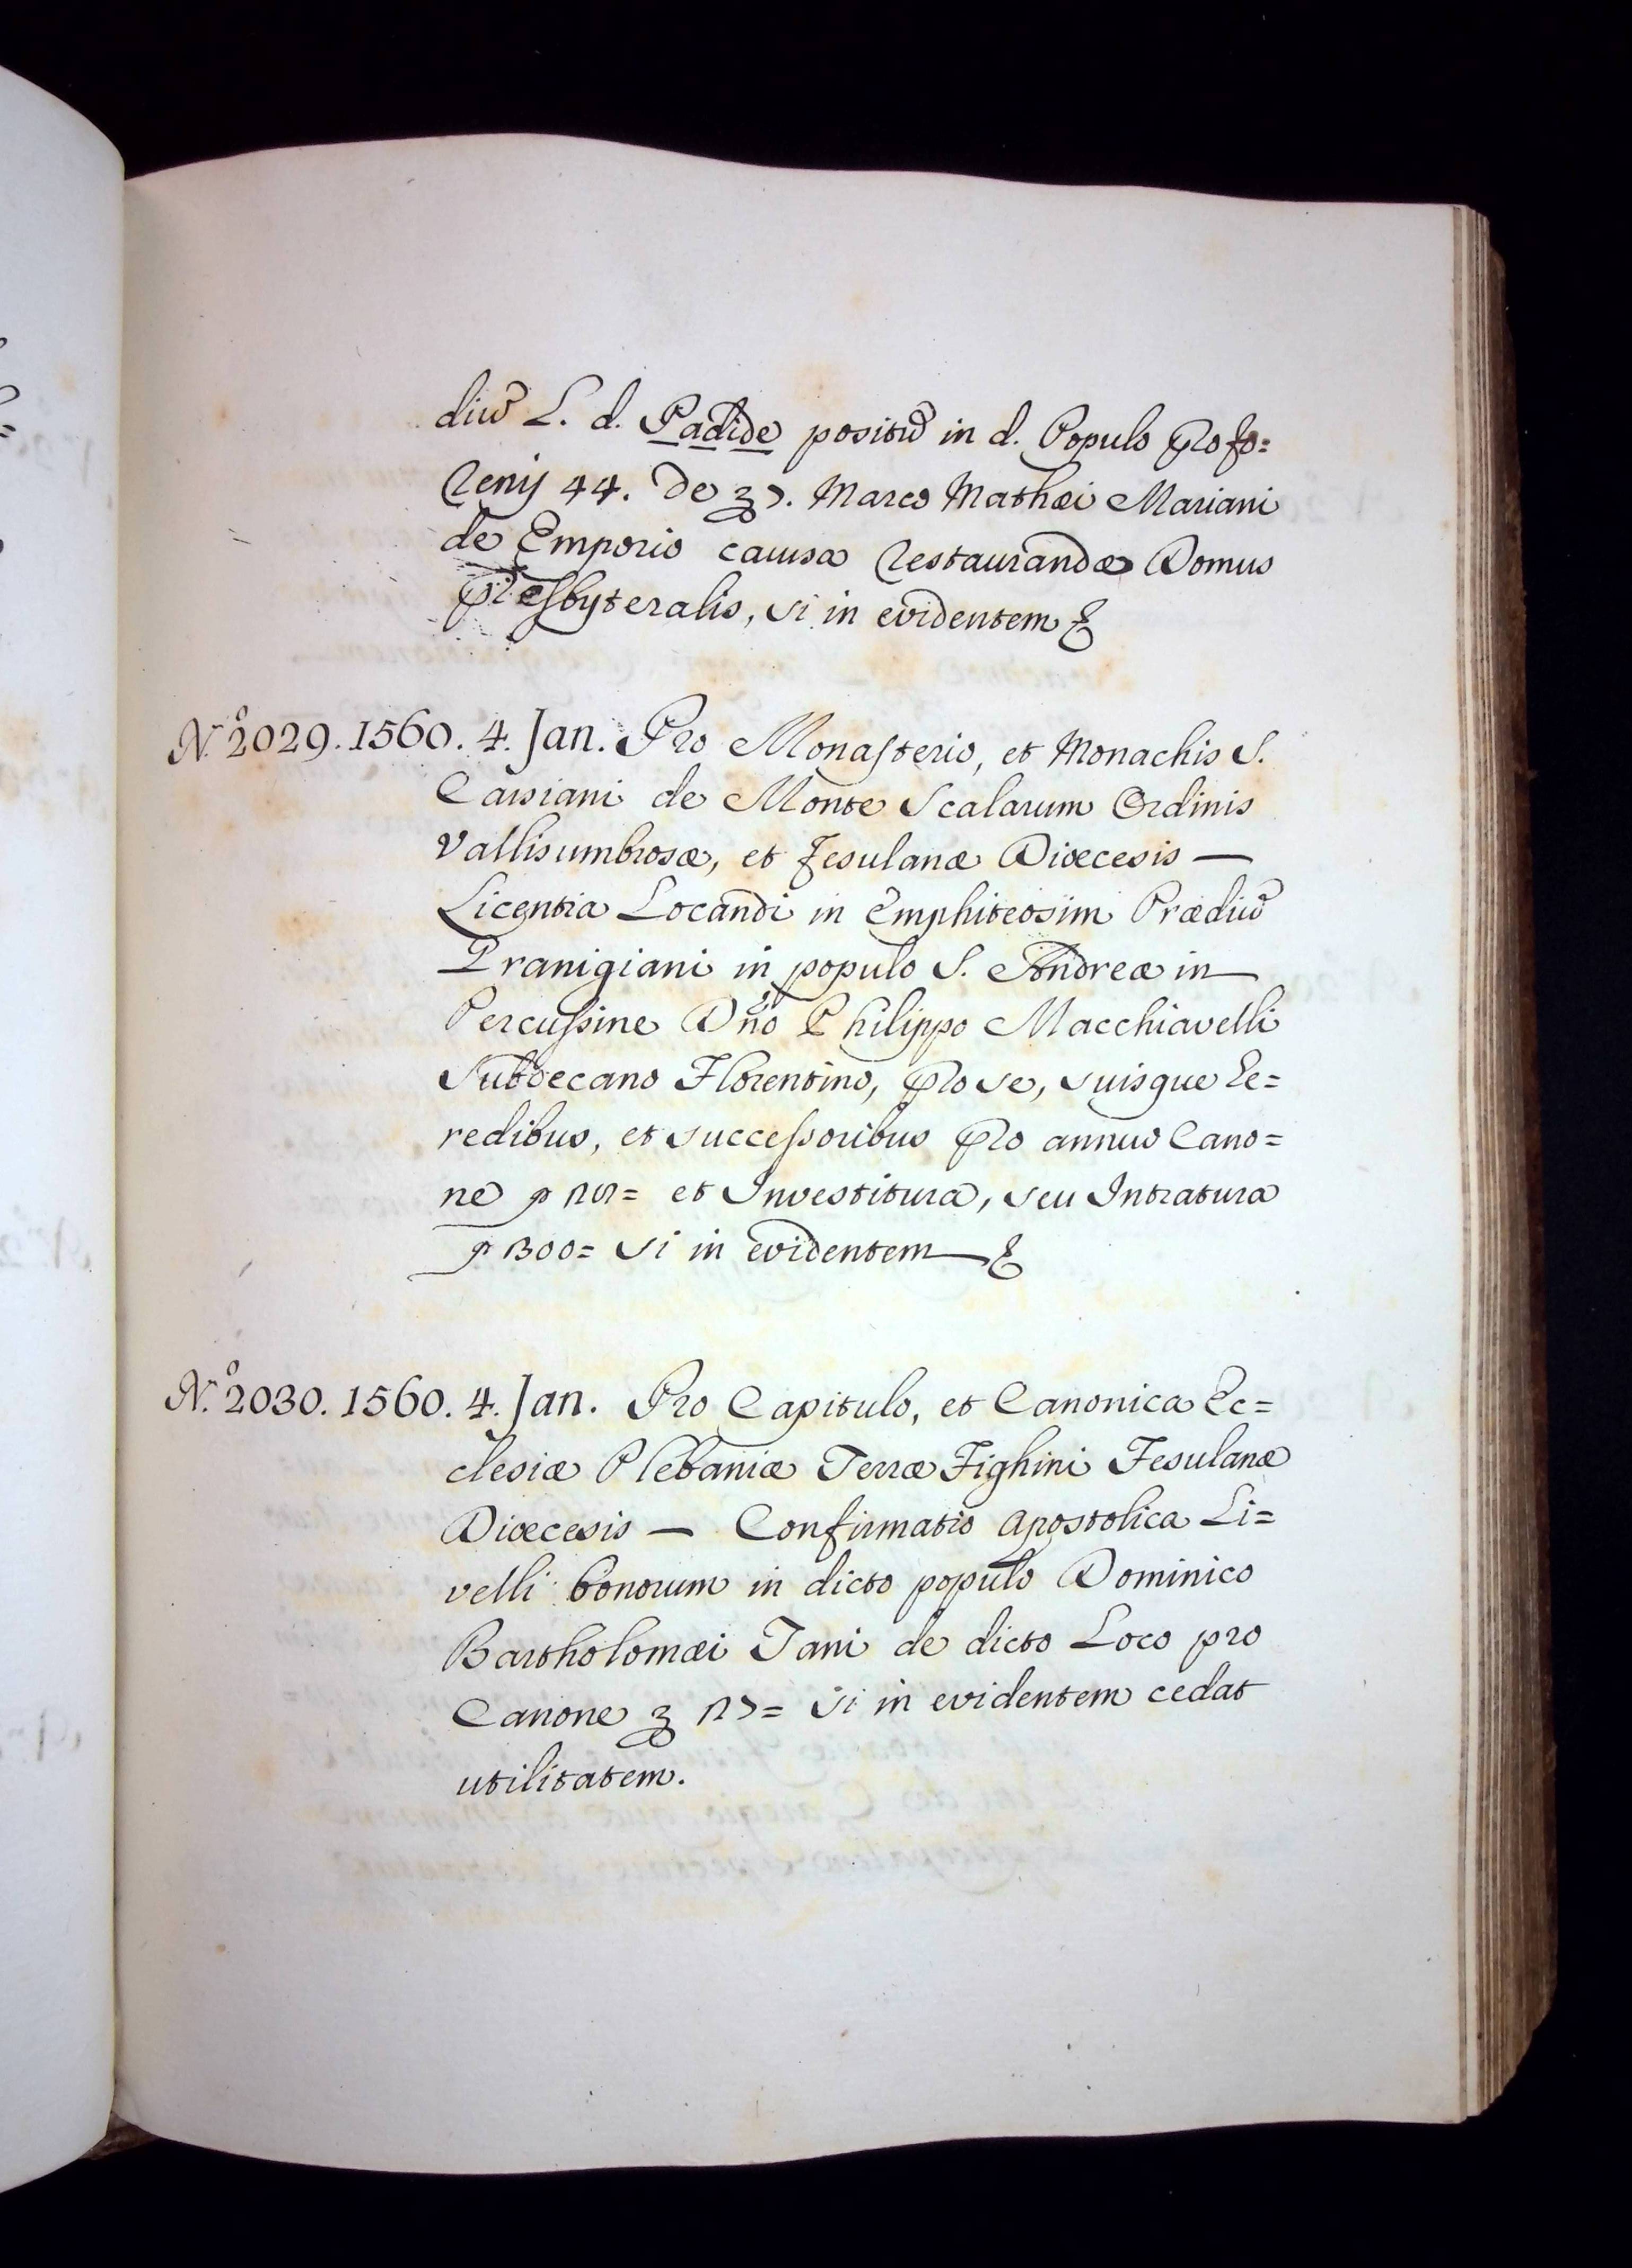 diũ L. d. Padide positũ in d. Populo pro fo=
renis 44. de Marco Mathæi Mariani
de Emporio causa restaurandæ Domus
Presbyteralis, si in evidentem &
N.º 2029. 1560. 4. Jan. Pro Monasterio, et Monachis S.
Cassiani de Monte Scalarum Ordinis
Vallisumbrosæ, et Fesulanæ Diœcesis —
Licentia Locandi in Emphiteosim Prædiũ
Granigiani in populo S. Andreæ in
Percussine Dño Philippo Macchiavelli
Subdecano Florentino, pro se, suisque he=
redibus, et successoribus pro annuo Cano=
ne et Investitura, seu Intratura
300= si in evidentem — &
N.º 2030. 1560. 4. Jan. Pro Capitulo, et Canonica Ec=
clesiæ Plebaniæ Terræ Fighini Fesulanæ
Diœcesis — Confirmatio Apostolica Li=
velli bonorum in dicto populo Dominico
Bartholomæi Tani de dicto Loco pro
Canone si in evidentem cedat
utilitatem.